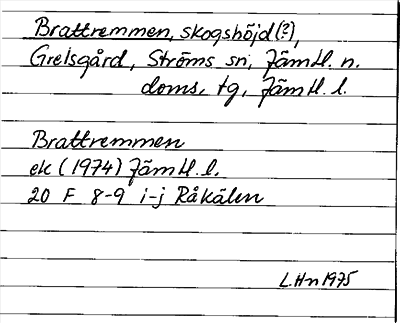 Brattremmen, skogshöjd(?),
Grelsgård, Ströms sn, Jämtl. n.
doms. tg, Jämtl. l.
Brattremmen
ek (1974) Jämtl. l.
20 F 8-9 i-j Råkälen
L.H-n 1975